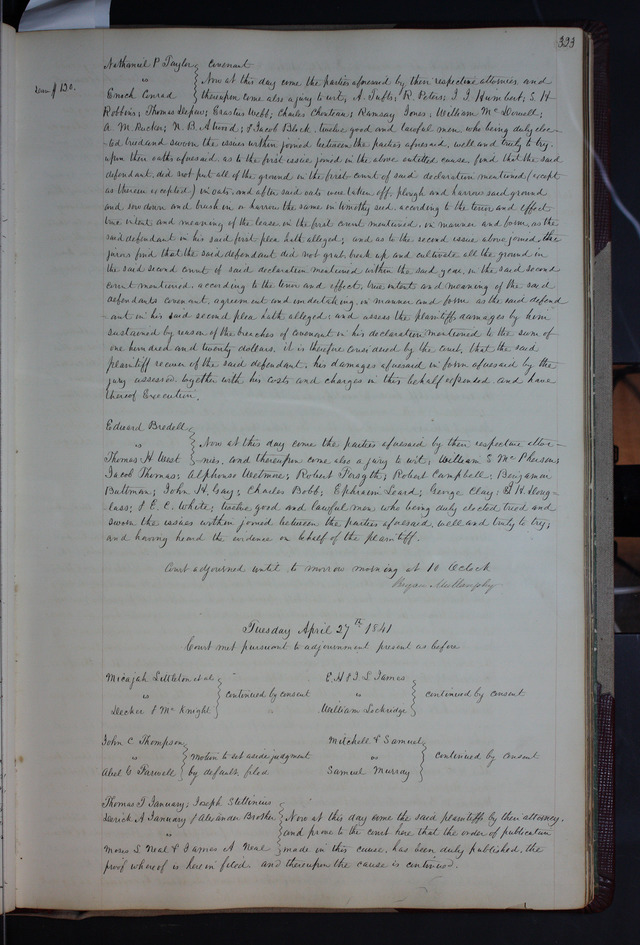 323
Nathaniel P. Taylor } Covenant
vs } Now at this day come the parties aforesaid by their respective attornies and
Enoch Conrad } thereupon come also a jury to wit; A. Tufts; R. Peters; J. J. Humbert; E. H
Robbins; Thomas Depew; Erastus Webb; Charles Chouteau; Ramsay Jones; William Mc Dowell;
A. M. Rucker; N. B. Atwood; & Jacob Block, twelve good and lawful men who being duly elec-
-ted tried and sworn the issues within joined between the parties aforesaid, well and truly to try,
upon their oaths aforesaid, as to the first issue joined in the above entitled cause, find that the said
defendant, did not put all of the ground in the first count of said declaration mentioned (except
as therein excepted) in oats, and after said oats were taken off, plough and harrow said ground
and sow down and brush in or harrow the same in timothy seed, according to the tenor and effect
true intent and meaning of the lease in the first count mentioned, in manner and form, as the
said defendant in his said first plea hath alleged; and as to the second issue above joined, the
jurors find that the said defendant did not grub, break up and cultivate all the ground in
the said second count of said declaration mentioned within the said year, in the said second
count mentioned, according to the tenor and effect, true intent and meaning of the said
defendants covenant, agreement and undertaking, in manner and form as the said defend
ant in his said second plea hath alleged; and assess the plaintiffs damages by him
sustained by reason of the breaches of covenant in his declaration mentioned to the sum of
one hundred and twenty dollars. it is therefore considered by the court, that the said
plaintiff recover of the said defendant, his damages aforesaid in form aforesaid by the
jury assessed, together with his costs and charges in this behalf expended and have
thereof Execution.
Edward Bredell
vs } Now at this day come the parties aforesaid by their respective attor-
Thomas H West } nies, and thereupon come also a jury to wit; William S Mc Pherson;
Jacob Thomas; Alphonso Wetmore; Robert Forsyth; Robert Campbell; Benjamin
Bateman; John H. Gay; Charles Bobb; Ephraim Leard; George Clay; H. Doug-
-lass; & E. C. White; twelve good and lawful men, who being duly elected tried and
sworn the issues within joined between the parties aforesaid, well and truly to try;
and having heard the evidence on behalf of the plaintiff.
Court adjourned until to morrow morning at 10 O'clock
Bryan Mullanphy
Tuesday April 27th 1841
Court met pursuant to adjournment present as before
Micajah Littleton et al
vs } continued by consent
Decker & Mc Knight
E. H & J. S James
vs } continued by consent
William Lockridge
John C. Thompson
vs } Motion to set aside judgment
Abel C Farwell } by default filed
Mitchell & Samuel
vs } continued by consent
Samuel Murray
Thomas T January; Joseph Stettinius
Derick A January & Alexander Brother } Now at this day come the said plaintiffs by their attorney,
vs } and prove to the court here that the order of publication
Moses S. Neal & James A Neal } made in this cause, has been duly published, the
proof whereof is herein filed and thereupon the cause is continued.